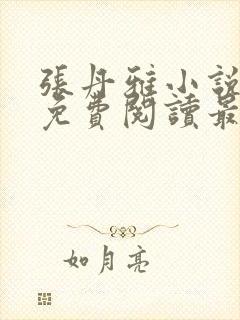 張丹雅小說
免費閱讀最
如月亮